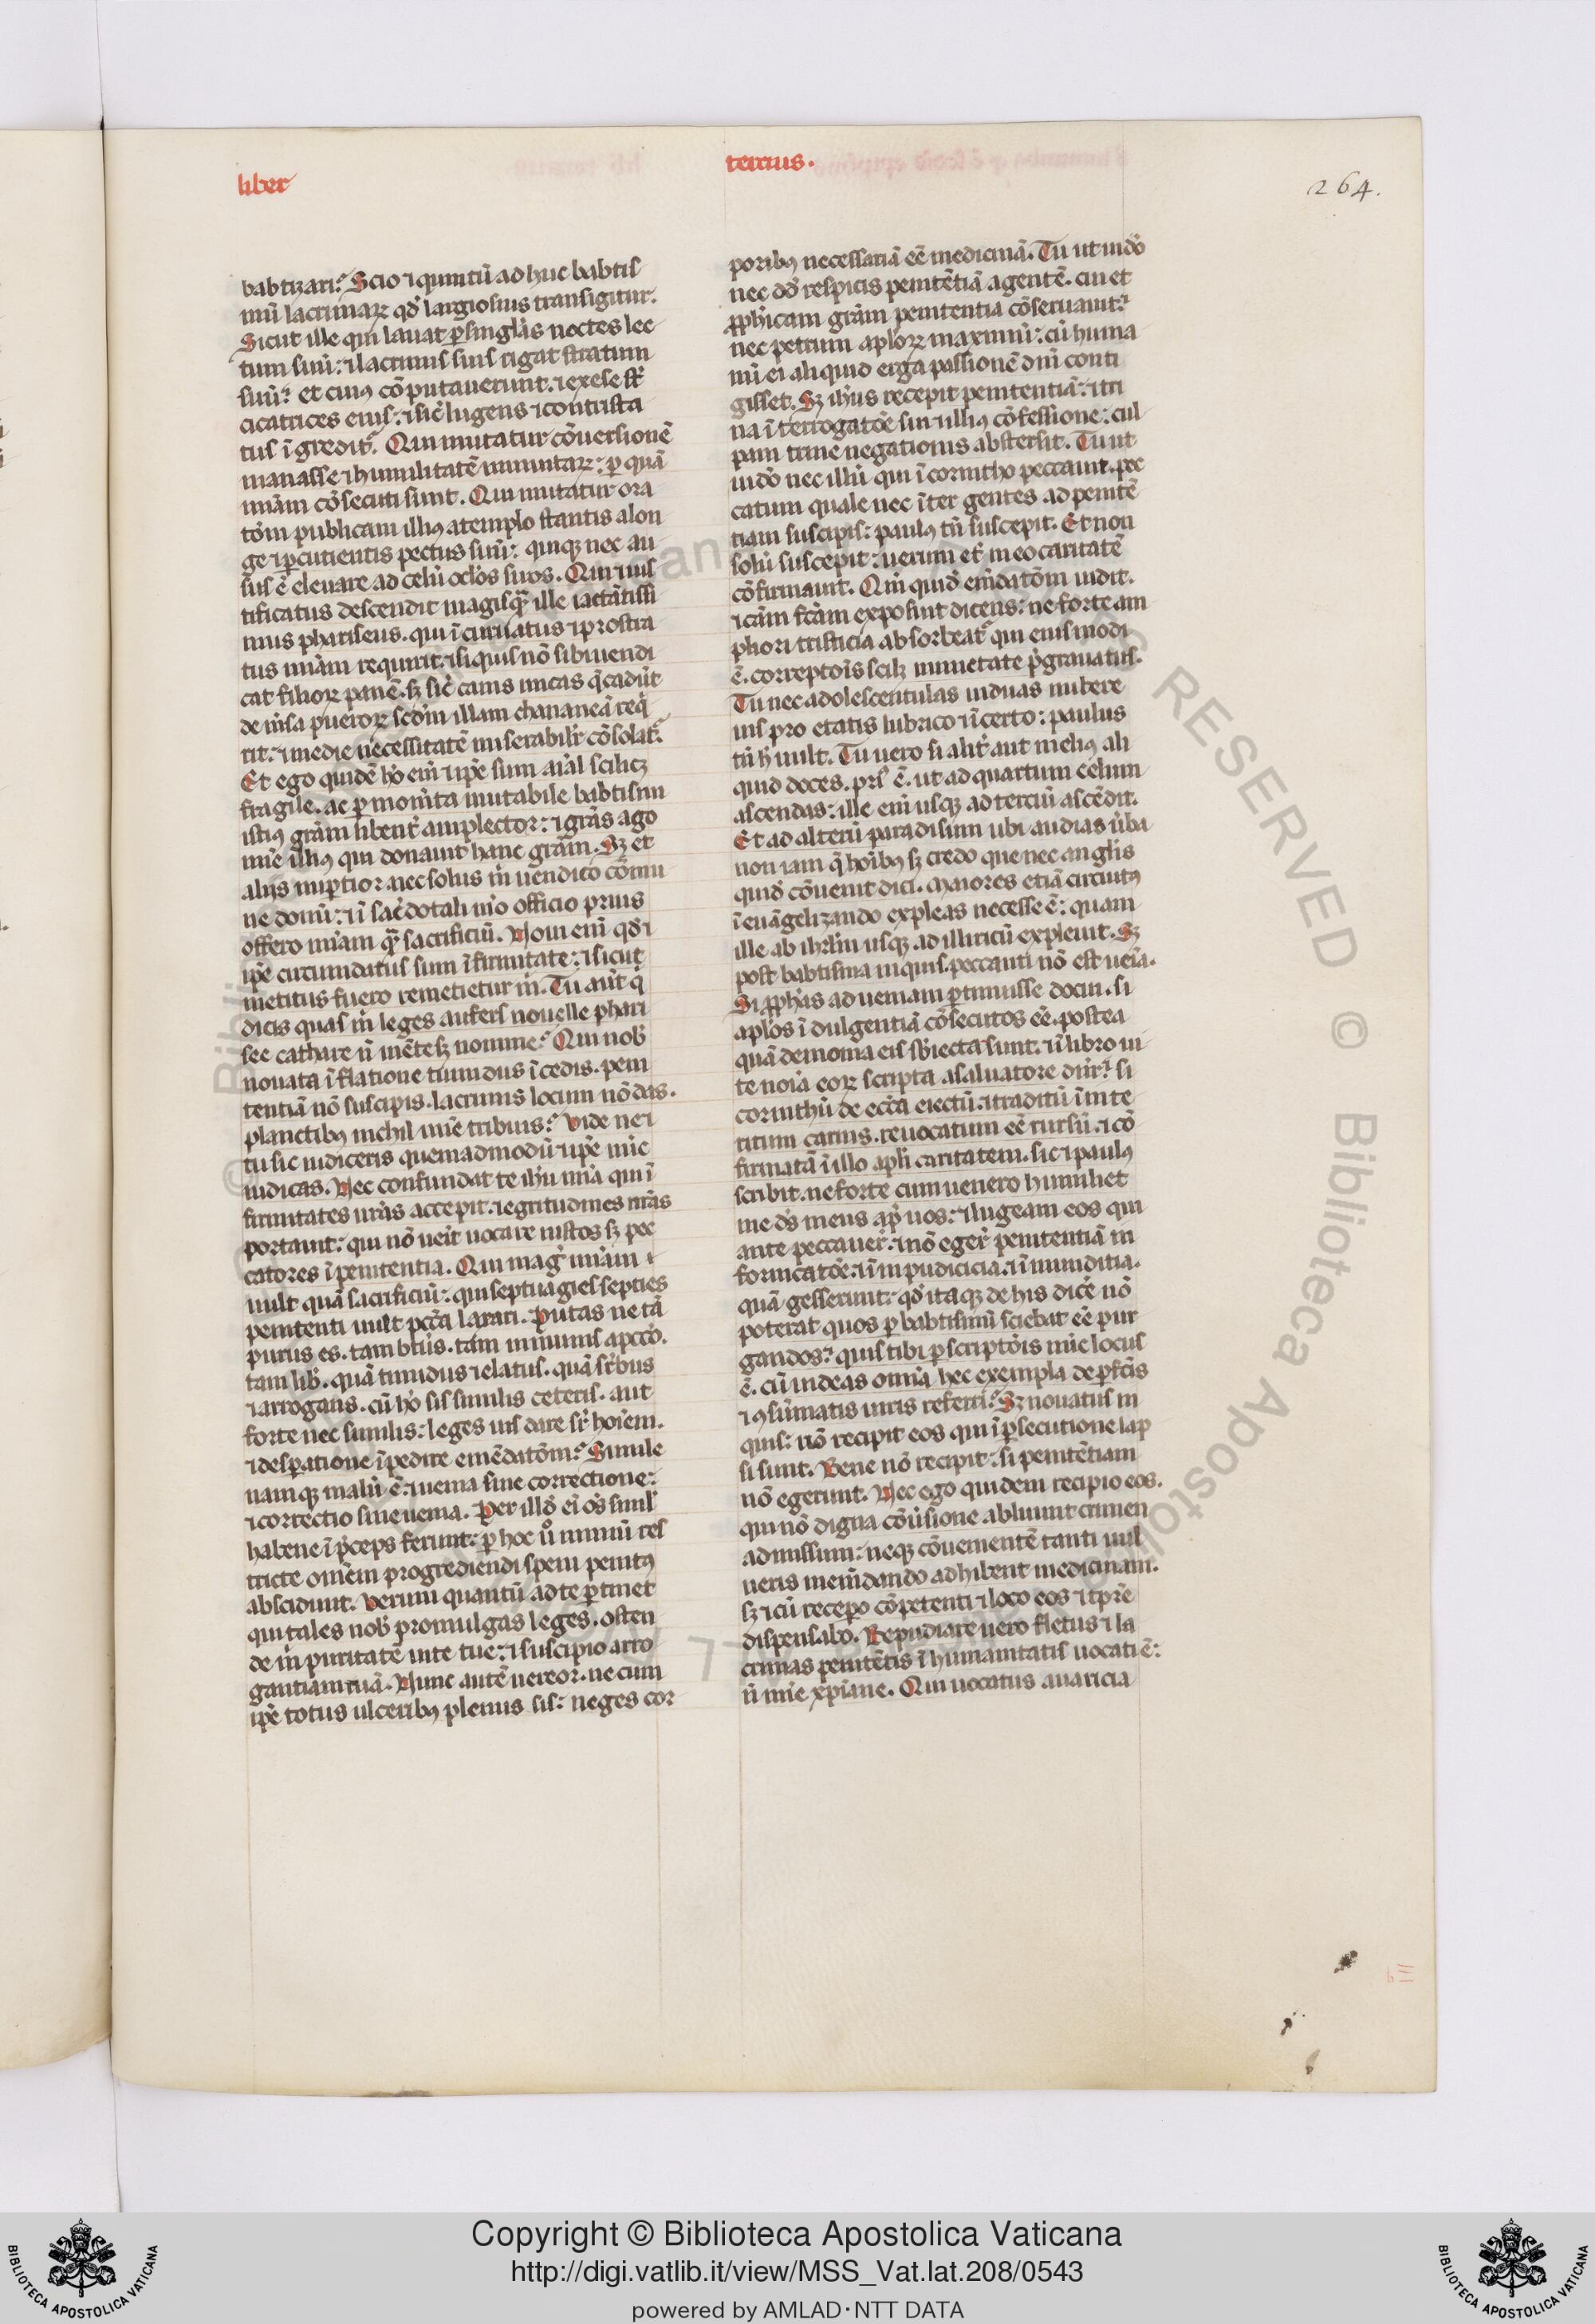 liber
tercius.
264.
babtizari? Scio ⁊ quintũ ad huc babtiſ
mũ lacrimaꝝ qđ largiosius transigitur.
Sicut ille qui lauat ꝑ singl̃as noctes lec
tum suũ: ⁊ lacrimis suis rigat stratum
suũ? et cuiꝰ cõputauerunt. ⁊ exese sũt
cicatrices eius: ⁊ sic̃ lugens ⁊ contrista
tus ĩgredit᷑. Qui mutatur cõuersionẽ
manasse ⁊ humilitatẽ niniuitaꝝ: ꝑ quã
miãm cõsecuti sunt. Qui mutatur ora
tõm publicam illiꝰ atemplo stantis alon
ge ⁊ ꝑcutientis pectus suũ: quiqꝫ nec au
sus ẽ eleuare ad celũ ocl̃os suos. Qui ius
tificatus descendit magisqꝫ ille iactãtissi
mus phariseus. qui ĩcuruatus ⁊ prostra
tus miãm requirit. ⁊ si quis nõ sibi uendi
cat filioꝝ panẽ. sꝫ sic̃ canis micas q̃ cadũt
de m̃sa pueroꝝ scđm illam chananeã req̃
rit: ⁊ medie necessitatẽ miserabilit̃ cõsolat᷑.
Et ego quidẽ hõ em̃ ⁊ ip̃e sum aĩal scilicꝫ
fragile. ac ꝑ momẽta mutabile babtismi
istiꝰ grãm libent̃ amplector: ⁊ grãs ago
mie illiꝰ qui donauit hanc grãm. Sꝫ et
alijs impertior. nec solus m̃ uendico cõmu
ne donũ: ⁊ ĩ sac̃dotali mõ officio prius
offero miãm q̃ sacrificiũ. Noui em̃ qđ ⁊
ip̃e circumdatus sum ĩfirmitate: ⁊ sicut
metitus fuero remetietur m̃. Tu aũt qͥ
dicis quas m̃ leges aufers nouelle phari
see cathare ñ mẽtesꝫ nomine? Qui nob̃
nouata ĩflatione tumidus ĩcedis. peni
tentiã nõ suscipis. lacrimis locum nõ das.
planctibꝰ nichil mie tribuis? Vide ne ⁊
tu sic iudiceris quemadmodũ ⁊ ip̃e mic
iudicas. Nec confundat te ihũ mia qui ĩ
firmitates nr̃as accepit. ⁊ egritudines nr̃as
portauit: qui nõ uenit uocare iustos sꝫ pec
catores ĩ penitentia. Qui mag̃ miãm ⁊
uult quã sacrificiũ: qui septuagies septies
penitenti uult pcc̃a laxari. Putas ne tã
purus es. tam bt̃us. tam ĩmunis a pccõ.
tam lib̃. quã tumidus ⁊ elatus. quã sr̃bus
⁊ arrogans. cũ hõ sis similis ceteris. aut
forte nec similis: leges uis dare sr̃ hoĩem.
⁊ desꝑatione ĩpedire emẽdatõm? Simile
namqꝫ malũ ẽ: uenia sine correctione:
⁊ correctio sine uenia. Per illđ em̃ om̃s simul
habene ĩ p̃ceps ferunt: ꝑ hoc u̾ nimiũ res
tricte om̃em progrediendi spem penitꝰ
abscidunt. Verum quantũ ad te ꝑtinet
qui tales nob̃ promulgas leges. osten
de m̃ puritatẽ uite tue: ⁊ suscipio arro
gantiam tuã. Nunc autẽ uereor. ne cum
ip̃e totus ulceribꝰ plenus sis: neges cor
poribꝰ necessariã eẽ medicinã. Tu ut uidõ
nec dđ respicis penitẽtiã agentẽ. cui et
ꝓph̃icam grãm penitentia cõseruauit?
nec petrum apl̃oꝝ maximũ: cũ huma
ni ei aliquid erga passionẽ dñi conti
gisset. Sꝫ ih̃us recepit penitentiã: ⁊ tri
na ĩterrogatõe siñ illiꝰ cõfessione: cul
pam trine negationis abstersit. Tu ut
uidõ nec illũ qui ĩ corintho peccauit. pec
catum quale nec ĩter gentes ad penitẽ
tiam suscipis: paulꝰ tñ suscepit. Et non
solũ suscepit: uerum et̃ in eo caritatẽ
cõfirmauit. Qm̃ quid em̃datõm uidit.
⁊ cãm fcãm exposuit dicens: ne forte am
phori tristicia absorbeat᷑ qui eiusmodi
ẽ. correptois scilꝫ immietate p̃grauatus.
Tu nec adolescentulas uiduas nubere
uis pro etatis lubrico ⁊ ĩcerto: paulus
tñ h uult. Tu uero si alit̃ aut meliꝰ ali
quid doces. prs̃ ẽ. ut ad quartum celum
ascendas: ille em̃ usqꝫ ad terciũ ascẽdit.
Et ad alterũ paradisum ubi audias ũba
non iam q̃ hoĩbꝰ sꝫ credo que nec angl̃is
quid cõuenit dici. Maiores etiã circuitꝰ
ĩ euãgelizando expleas necesse ẽ: quam
ille ab ihrl̃m usqꝫ ad illiricũ expleuit. Sꝫ
post babtisma inquis. peccanti nõ est uenia.
Si ꝓph̃as ad ueniam ꝑtinuisse docui. si
apl̃os ĩdulgentiã cõsecutos eẽ. postea
quã demonia eis sb̃iecta sunt. ⁊ ĩ libro ui
te noĩa eoꝝ scripta a saluatore dñr? si
corinthũ de ecc̃a eiectũ. ⁊ traditũ ĩ inte
ritum carnis. reuocatum eẽ rursũ. ⁊ cõ
firmatã ĩ illo apl̃i caritatem. sic ⁊ paulꝰ
scribit. ne forte cum uenero humiliet
me ds̃ meus ap̃ uos: ⁊ lugeam eos qui
ante peccauer̃. ⁊ nõ eger̃ penitentiã in
fornicatõe. ⁊ ĩ inpudicicia. ⁊ ĩmunditia.
quã gesserunt: qđ itaqꝫ de his dicẽ nõ
poterat quos ꝑ babtismũ sciebat eẽ pur
gandos? quis tibi ꝑscriptõis mic locus
ẽ. cũ uideas omnia hec exempla de ꝑfcĩs
⁊ ꝯsũmatis uiris referri? Sꝫ nouatus in
quis: nõ recipit eos qui ĩ ꝑsecutione lap
si sunt. Bene nõ recipit: si penitẽtiam
nõ egerunt. Nec ego quidem recipio eos.
qui nõ digna cõũsione abluunt crimen
admissum: neqꝫ cõuenientẽ tanti uul
neris in em̃dando adhibent medicinam.
sꝫ ⁊ cũ recepo cõpetenti ⁊ loco eos ⁊ tpr̃e
dispensabo. Repudiare uero fletus ⁊ la
crimas penitẽtis ĩhumanitatis uocati ẽ:
ñ mie xp̃iane. Qui uocatus auaricia
Copyright © Biblioteca Apostolica Vaticana
http://digi.vatlib.it/view/MSS_Vat.lat.208/0543
powered by AMLAD·NTT DATA